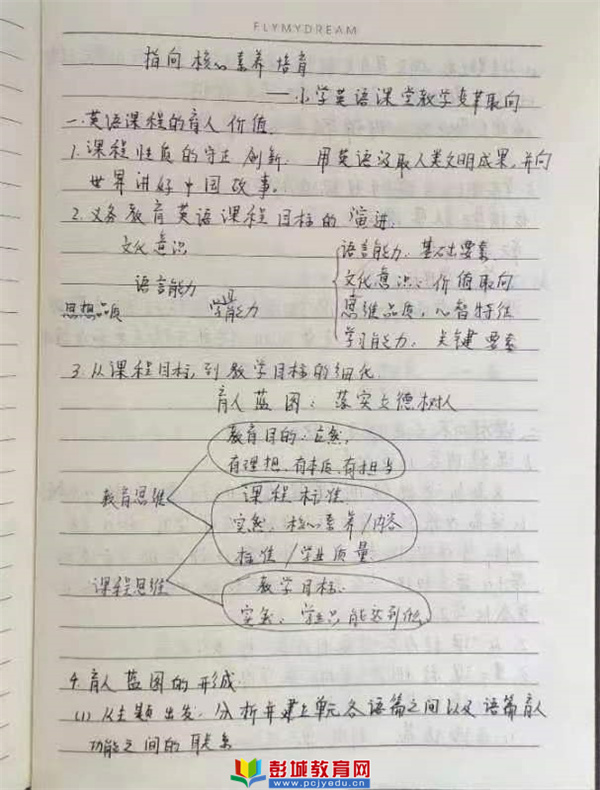 FLYMYDREAM
指向核心素养培育
——小学英语课堂教学变革取向
一.英语课程的育人价值.
1.课程性质的守正创新. 用英语汲取人类文明成果,并向
世界讲好中国故事.
2.义务教育英语课程目标的演进.
文化意识
语言能力
思想品质 学习能力
语言能力:基础要素
文化意识:价值取向
思维品质:心智特征
学习能力:关键要素
3.从课程目标,到教学目标的细化.
育人蓝图:落实立德树人
教育目的:应然,
有理想、有本领、有担当
教育思维
课程标准
实然,核心素养/内容
标准/学业质量
课程思维
教学目标.
实然:学生只能达到
4.育人蓝图的形成.
(1)从主题出发.分析并建立单元各语篇之间以及语篇育人
功能之间的联系
彭城教育网
www.pcjyedu.cn